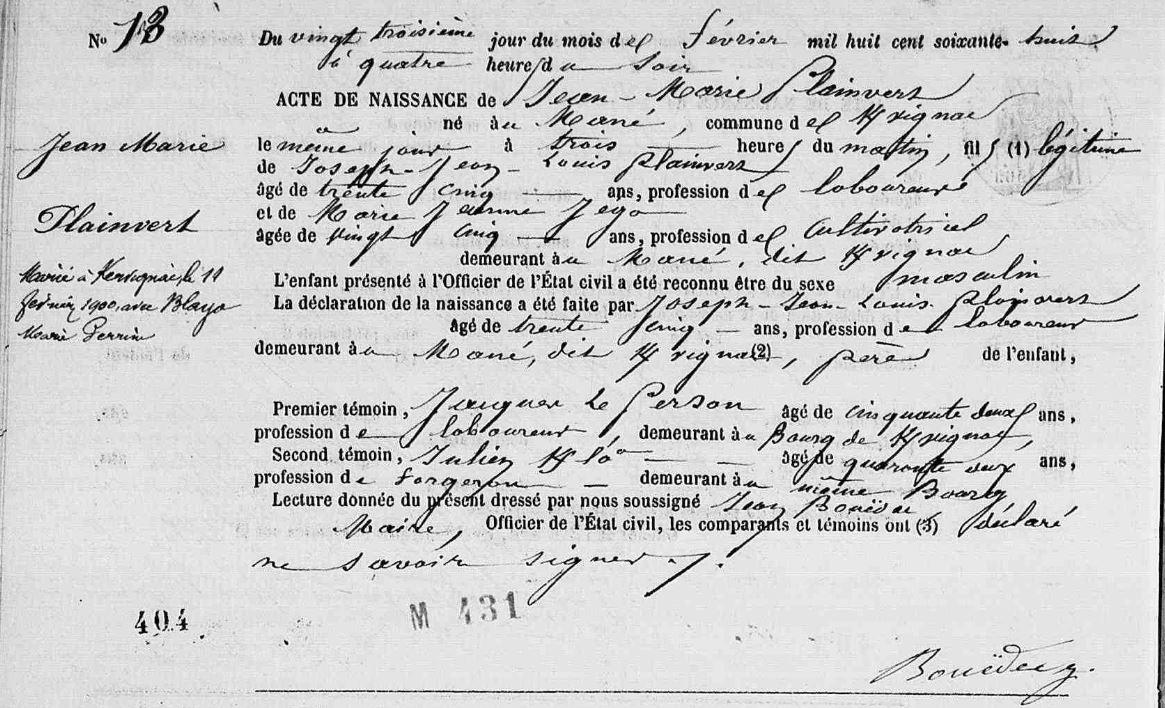 No 13
Du vingt troisième jour du mois de février mil huit cent soixante-huit
à quatre heures du soir
ACTE DE NAISSANCE de Jean-Marie Plainvert
né au Mané, commune de
le même jour à trois heures du matin, fils (1) légitime
de Joseph-Jean-Louis Plainvert
âgé de trente cinq ans, profession de laboureur
et de Marie Jeanne Jego
âgée de vingt cinq ans, profession de cultivatrice
demeurant au Mané, dit
L'enfant présenté à l'Officier de l'État civil a été reconnu être du sexe masculin
La déclaration de la naissance a été faite par Joseph-Jean-Louis Plainvert
âgé de trente cinq ans, profession de laboureur
demeurant au Mané, dit (2), père de l'enfant,
Premier témoin, Jacques Le Person âgé de cinquante deux ans,
profession de laboureur, demeurant au Bourg de
Second témoin, Julien âgé de quarante deux ans,
profession de forgeron demeurant au même Bourg
Lecture donnée du présent dressé par nous soussigné Jean Bouëdec
Maire, Officier de l'État civil, les comparants et témoins ont (3) déclaré
ne savoir signer ./.
Jean Marie
Plainvert
Marié à Kervignac, le 11
1900, avec Blayo
Marie Perrine
404
M 431
Bouëdec